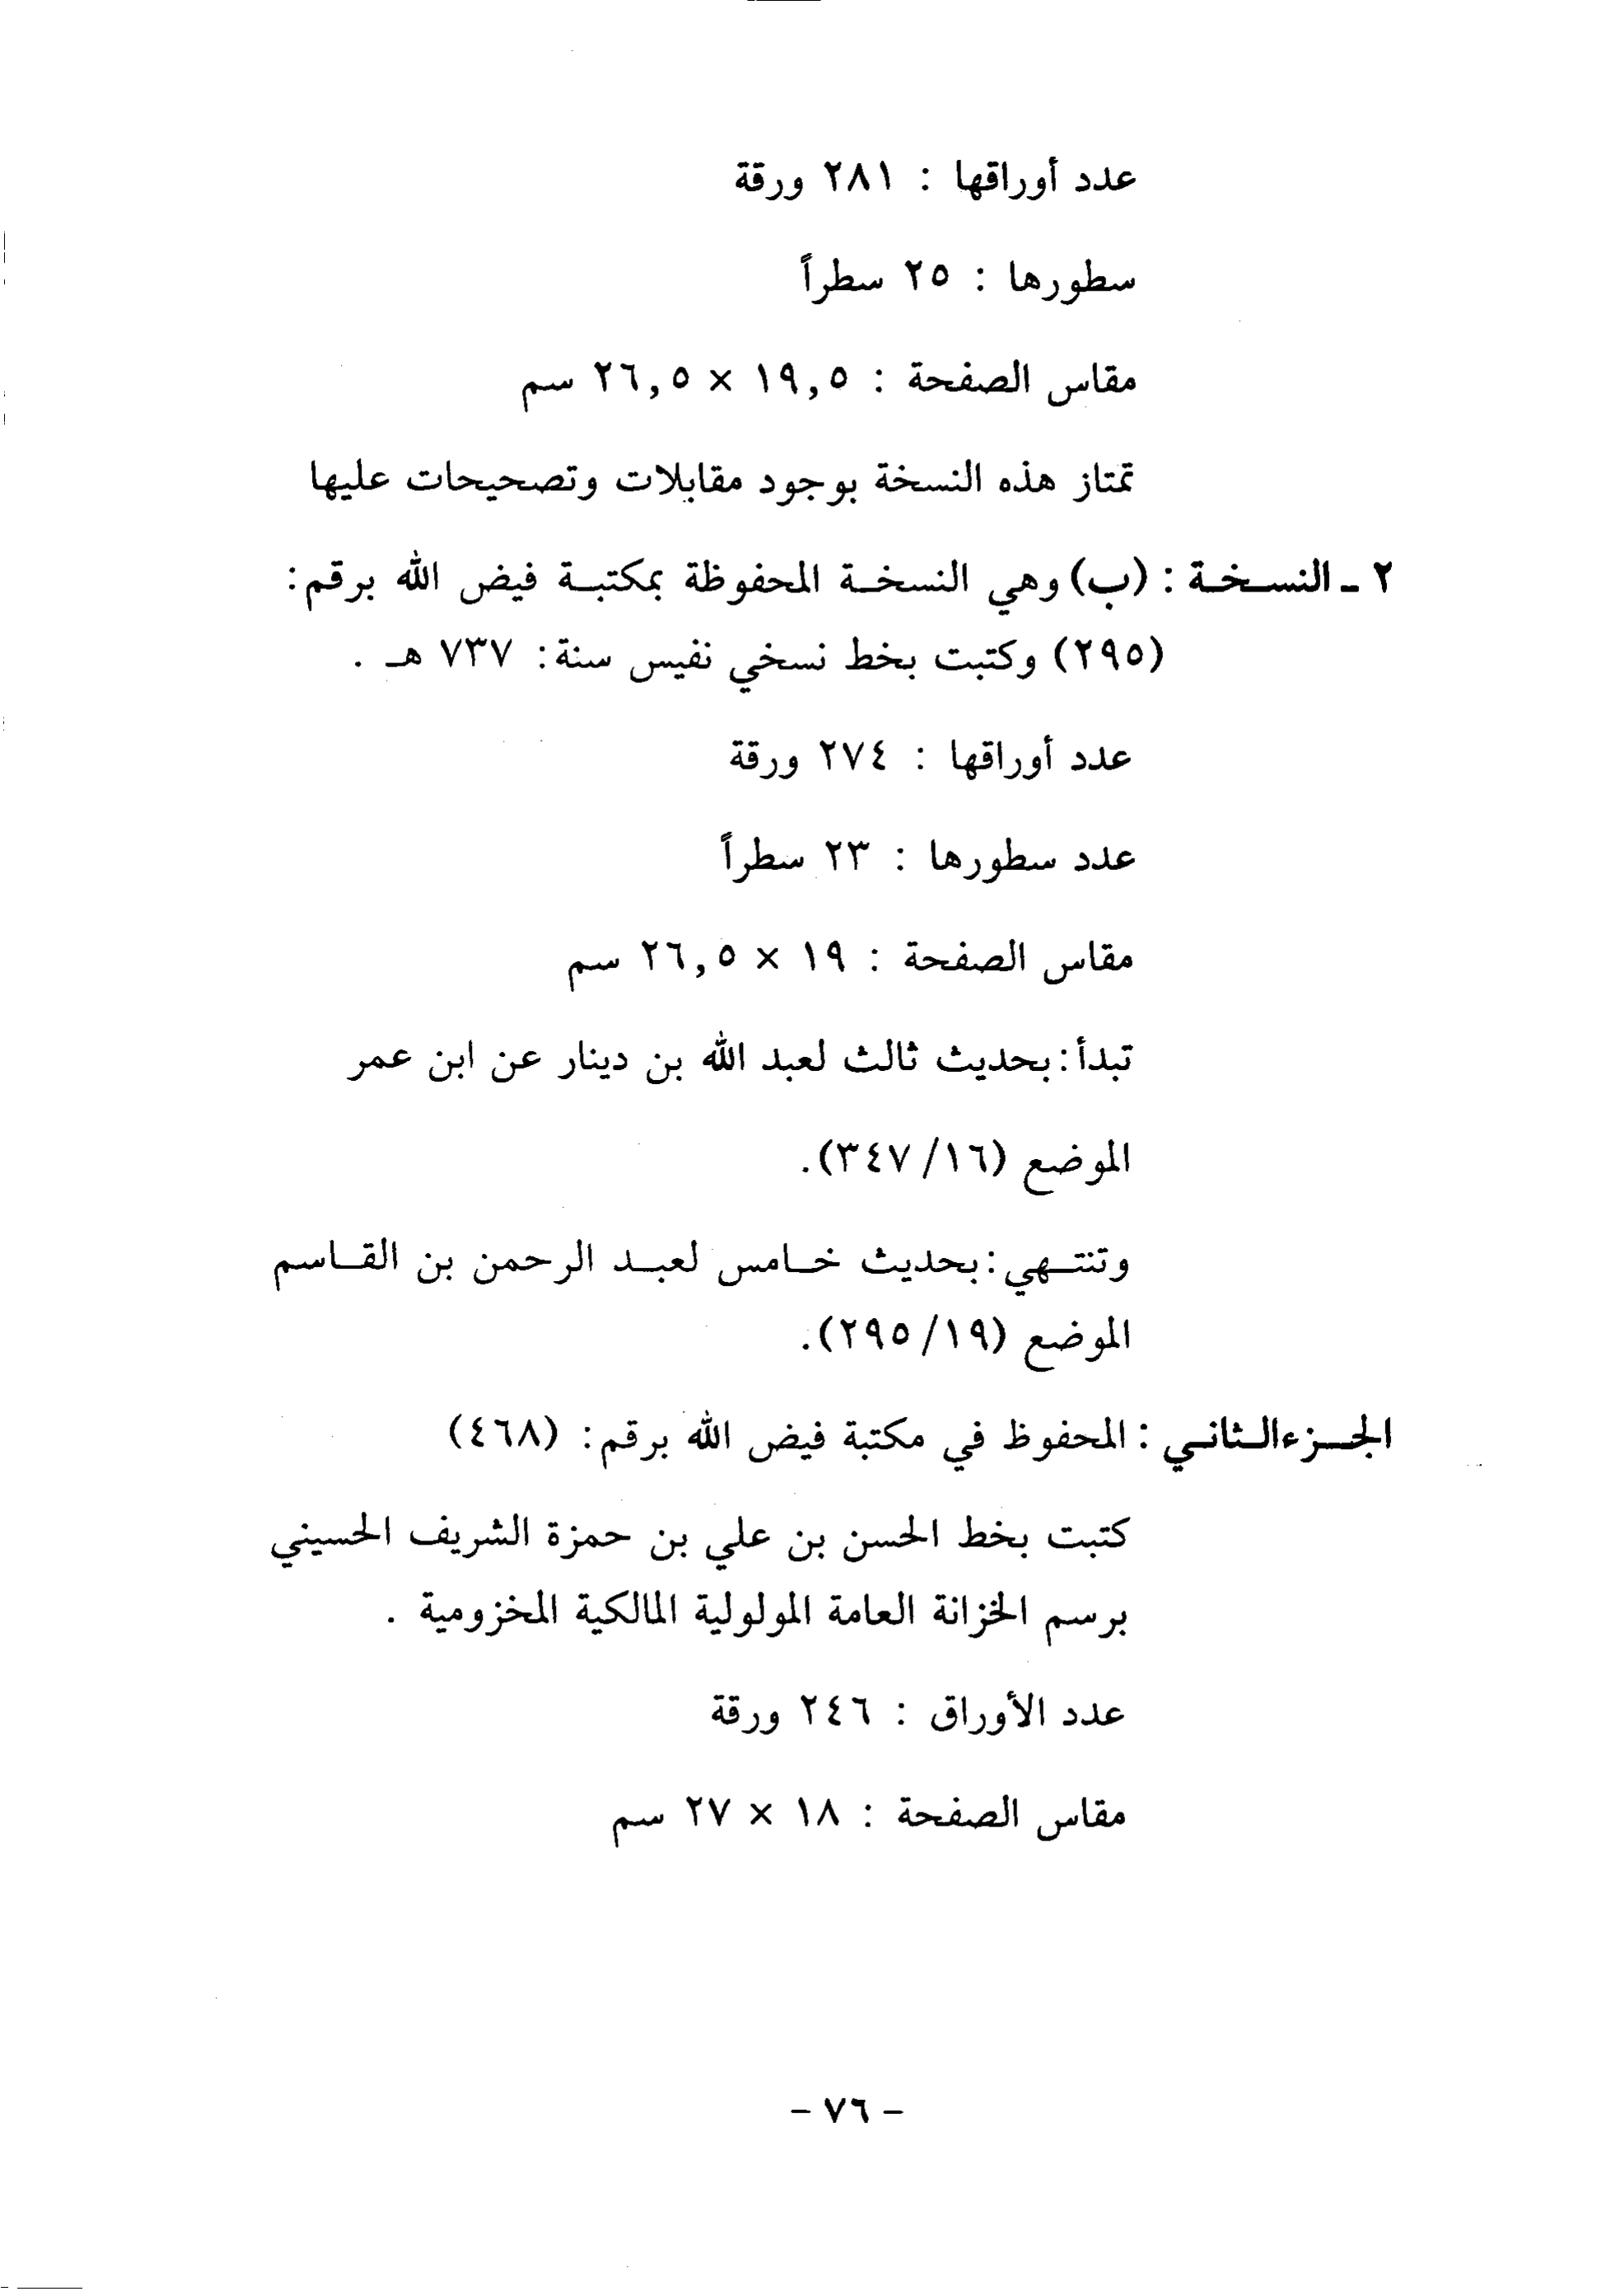 عدد أوراقها : ٢٨١ ورقة
سطورها : ٢٥ سطراً
مقاس الصفحة : ١٩,٥ × ٢٦,٥ سم
تمتاز هذه النسخة بوجود مقابلات وتصحيحات عليها
٢ - النسخة : (ب) وهي النسخة المحفوظة بمكتبة فيض الله برقم:
(٢٩٥) وكتبت بخط نسخي نفيس سنة: ٧٣٧ هـ .
عدد أوراقها : ٢٧٤ ورقة
عدد سطورها : ٢٣ سطراً
مقاس الصفحة : ١٩ × ٢٦,٥ سم
تبدأ: بحديث ثالث لعبد الله بن دينار عن ابن عمر
الموضع (٣٤٧/١٦).
وتنتهي: بحديث خامس لعبد الرحمن بن القاسم
الموضع (٢٩٥/١٩).
الجزء الثاني : المحفوظ في مكتبة فيض الله برقم: (٤٦٨)
كتبت بخط الحسن بن علي بن حمزة الشريف الحسيني
برسم الخزانة العامة المولولية المالكية المخزومية .
عدد الأوراق : ٢٤٦ ورقة
مقاس الصفحة : ١٨ × ٢٧ سم
- ٧٦ -